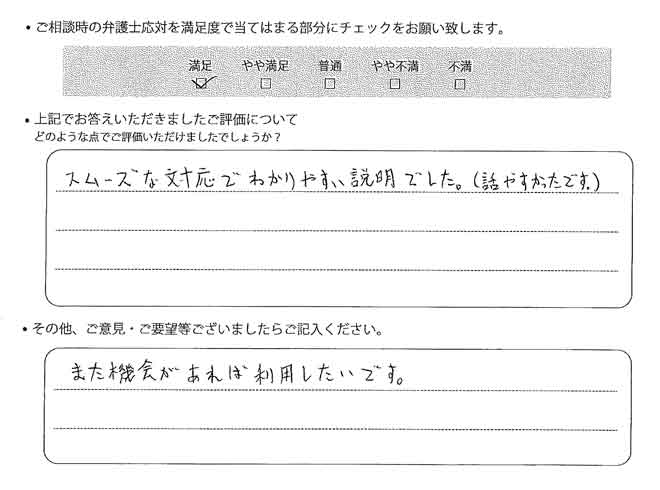 ・ご相談時の弁護士応対を満足度で当てはまる部分にチェックをお願い致します。
満足 やや満足 普通 やや不満 不満
☑ □ □ □ □
・上記でお答えいただきましたご評価について
どのような点でご評価いただけましたでしょうか？
スムーズな対応でわかりやすい説明でした。(話やすかったです。)
・その他、ご意見・ご要望等ございましたらご記入ください。
また機会があれば利用したいです。